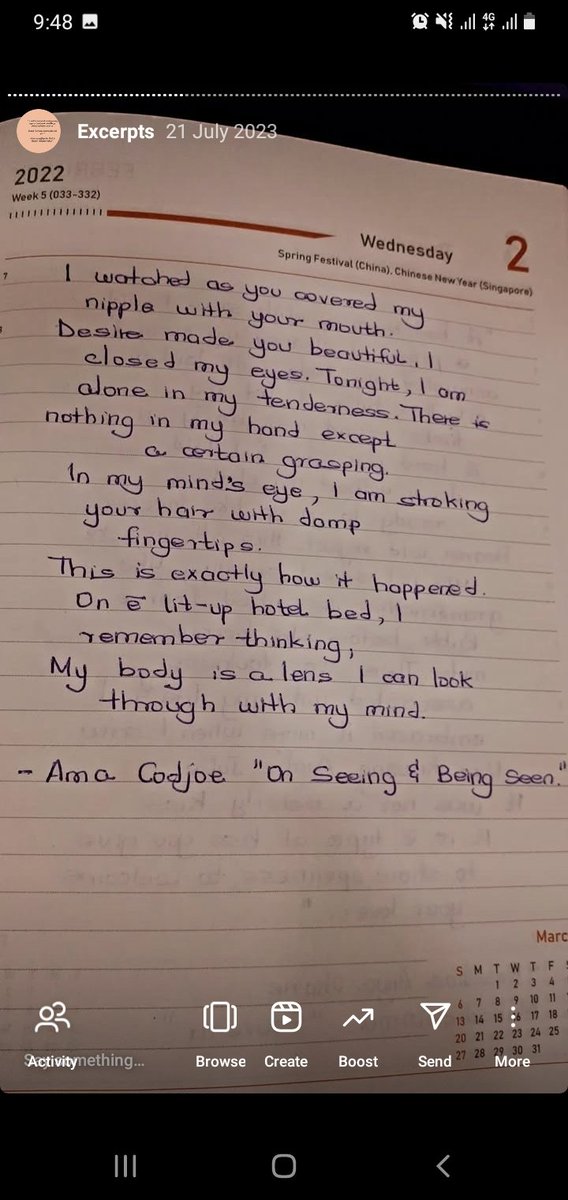 9:48
4G
Excerpts 21 July 2023
2022
Week 5 (033-332)
Wednesday 2
Spring Festival (China), Chinese New Year (Singapore)
7
I watched as you covered my
nipple with your mouth.
Desire made you beautiful. I
closed my eyes. Tonight, I am
alone in my tenderness. There is
nothing in my hand except
a certain grasping.
In my mind's eye, I am stroking
your hair with damp
fingertips.
This is exactly how it happened.
On ē lit-up hotel bed, I
remember thinking;
My body is a lens I can look
through with my mind.
- Ama Codjoe "On Seeing & Being Seen."
Marc
S M T W T F
1 2 3 4
6 7 8 9 10 11
13 14 15 16 17 18
20 21 22 23 24 25
27 28 29 30 31
Say something...
Activity Browse Create Boost Send More